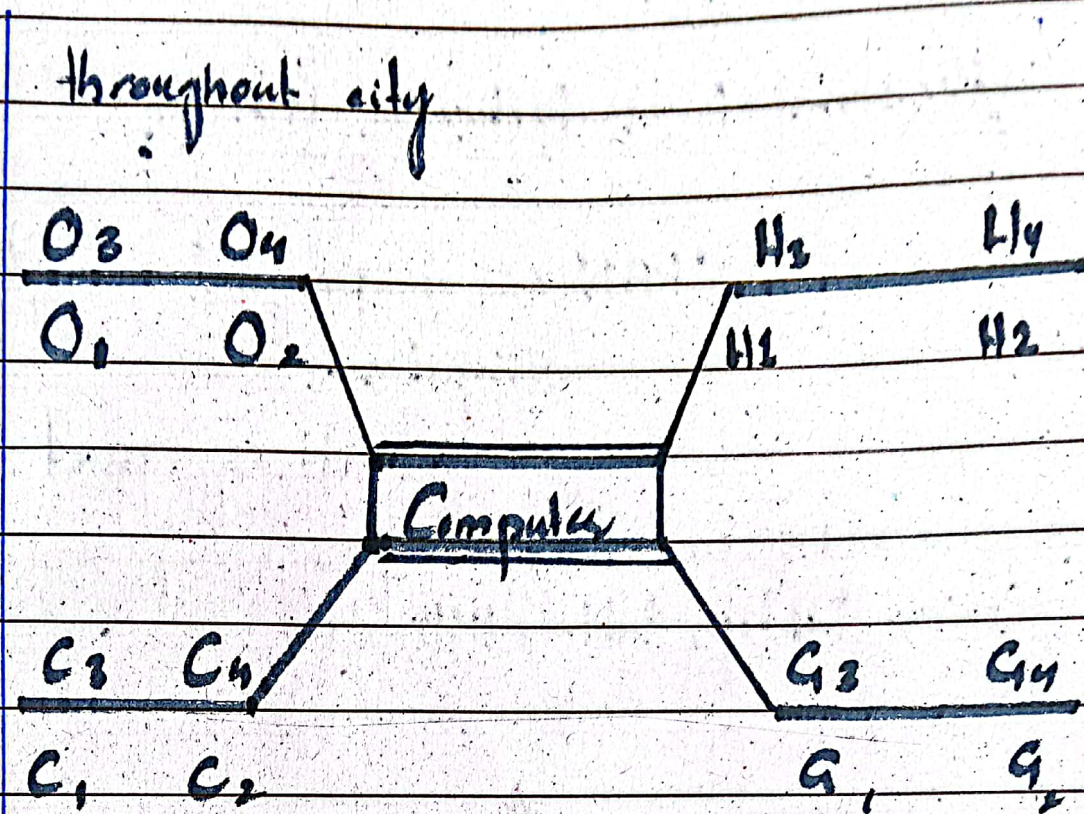 throughout city
O3 O4 H3 H4
O1 O2 H1 H2
Computer
C3 C4 G3 G4
C1 C2 G1 G2